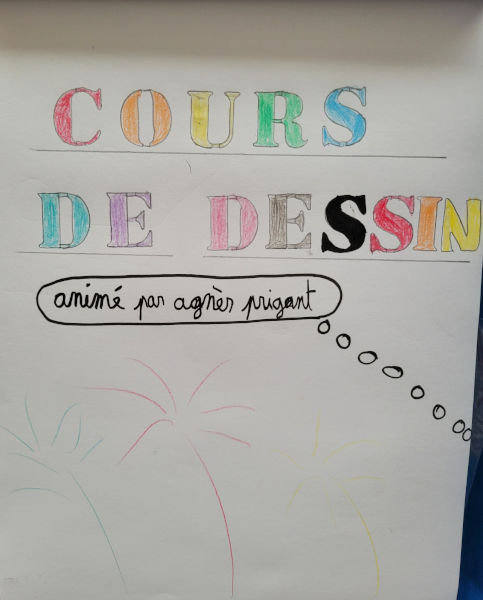 COURS
DE DESSIN
animé par agnès prigant